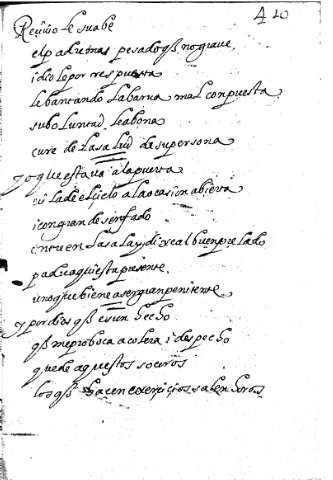 420
Reciuiole suabe
el padre mas pesado qͥ no graue,
i dio le por respuesta
lebantando la barua mal conpuesta
su boluntad le abona
cure de la salud de su persona
yo que estaua a la puerta
vi la del cielo a la ocasion abierta
i con gran desenfado
entre en la sala y dixe al buen prelado
padre aqui esta presente
uno que biene a ser gran penitente
y por dios qͥ es un hecho
qͥ me proboca a colera i despecho
que de aquestos
los qͥ hacen exerçiçios salen